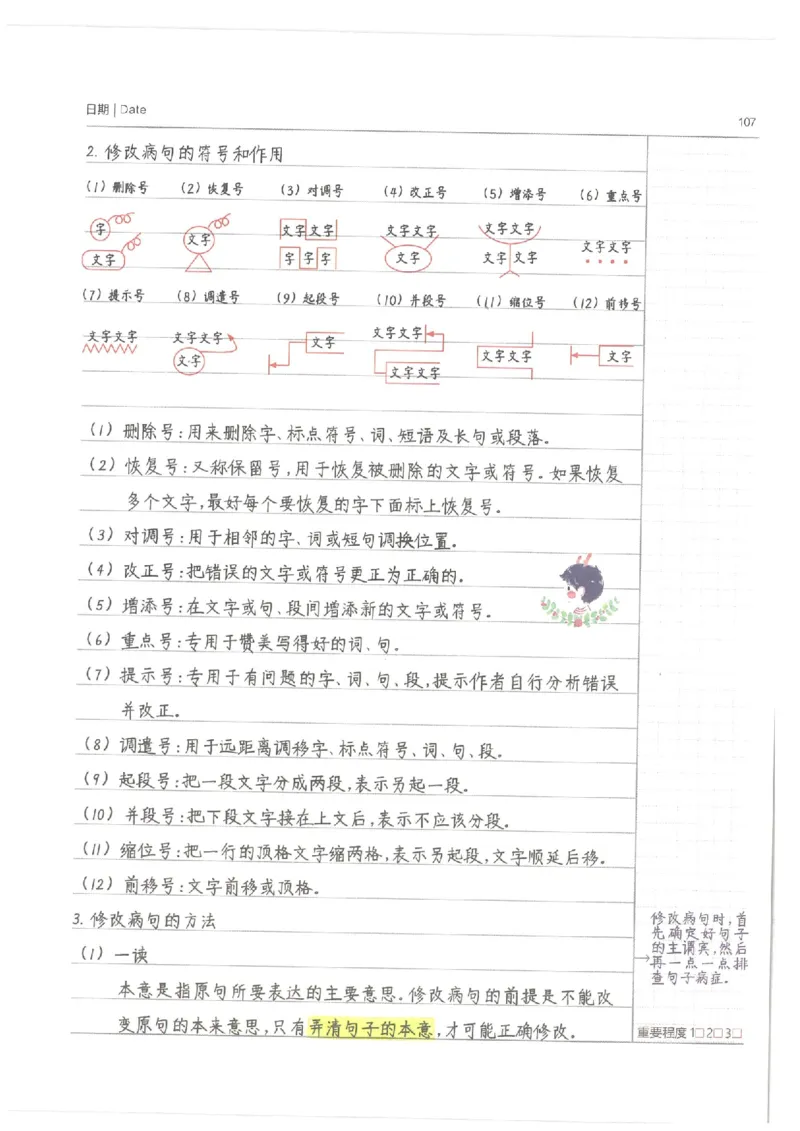 日期 | Date
107
2. 修改病句的符号和作用
(1) 删除号 (2) 恢复号 (3) 对调号 (4) 改正号 (5) 增添号 (6) 重点号
字 文字 文字文字 文字文字 文字文字 文字文字
文字 字字字 文字 文字文字
(7) 提示号 (8) 调遣号 (9) 起段号 (10) 并段号 (11) 缩位号 (12) 前移号
文字文字 文字文字 文字 文字文字 文字文字 文字
文字 文字文字
(1) 删除号:用来删除字、标点符号、词、短语及长句或段落。
(2) 恢复号:又称保留号,用于恢复被删除的文字或符号。如果恢复
多个文字,最好每个要恢复的字下面标上恢复号。
(3) 对调号:用于相邻的字、词或短句调换位置。
(4) 改正号:把错误的文字或符号更正为正确的。
(5) 增添号:在文字或句、段间增添新的文字或符号。
(6) 重点号:专用于赞美写得好的词、句。
(7) 提示号:专用于有问题的字、词、句、段,提示作者自行分析错误
并改正。
(8) 调遣号:用于远距离调移字、标点符号、词、句、段。
(9) 起段号:把一段文字分成两段,表示另起一段。
(10) 并段号:把下段文字接在上文后,表示不应该分段。
(11) 缩位号:把一行的顶格文字缩两格,表示另起段,文字顺延后移。
(12) 前移号:文字前移或顶格。
3. 修改病句的方法
(1) 一读
本意是指原句所要表达的主要意思。修改病句的前提是不能改
变原句的本来意思,只有弄清句子的本意,才可能正确修改。
修改病句时,首
先确定好句子
的主谓宾,然后
再一点一点排
查句子病症。
重要程度 1□2□3□